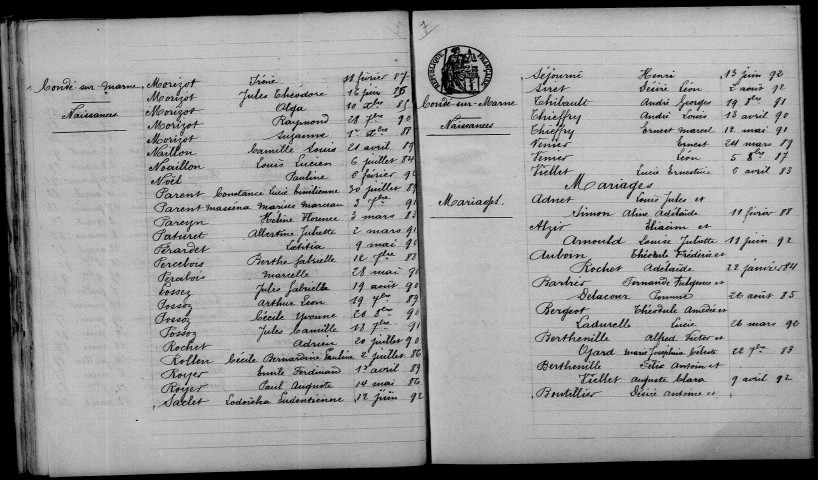 Condé sur Marne
Naissances
Morizot Irène 18 février 87
Morizot Jules Théodore 16 juin 85
Morizot Olga 10 Xbre 85
Morizot Raymond 28 7bre 90
Morizot Suzanne 1er Xbre 88
Naillon Camille Louis 21 avril 89
Noaillon Louis Lucien 6 juillet 84
Noël Pauline 6 février 92
Parent Constance Lucie Emilienne 30 juillet 89
Parent Masséna Marius Marceau 3 7bre 91
Pareyn Hélène Florence 3 mars 83
Paturet Albertine Juliette 2 mars 90
Pérardet Lætitia 9 mai 90
Percebois Berthe Gabrielle 12 7bre 88
Percebois Marcelle 28 mai 90
Possoz Jules Gabrielle 19 août 90
Possoz Arthur Léon 19 7bre 89
Possoz Cécile Yvonne 21 8bre 90
Possoz Jules Camille 18 7bre 91
Rochet Adrien 20 juillet 90
Rollen Cécile Bernardine Pauline 2 juillet 86
Royer Emile Ferdinand 1er avril 89
Royer Paul Auguste 14 mai 86
Saclet Lodoïska Eudentienne 12 juin 92
7
REPUBLIQUE FRANÇAISE
Condé-sur-Marne
Naissances
Séjourné Henri 13 juin 92
Siret Désiré Léon 2 août 92
Thibault André Georges 19 8bre 91
Thieffry André Louis 13 avril 90
Thieffry Ernest Marcel 12 mai 91
Venier Ernest 24 mars 89
Venier Léon 5 8bre 87
Viellet Lucie Ernestine 6 avril 83
Mariages
Mariages.
Adnet Louis Jules et
Simon Alice Adélaïde 11 février 88
Alzir Eliacim et
Arnould Louise Juliette 11 juin 92
Auboin Théodule Frédéric et
Rochet Adélaïde 22 janvier 84
Barbier Fernande Fulgence et
Delacour Pomme 26 août 85
Bergeot Théodule Amédée et
Ladurelle Lucie 26 mars 92
Berthenille Alfred Victor et
Ogard Marie Joséphine Céleste 22 7bre 83
Berthenille Félix Antoine et
Viellet Auguste Clara 9 avril 92
Boutillier Désiré Antoine et